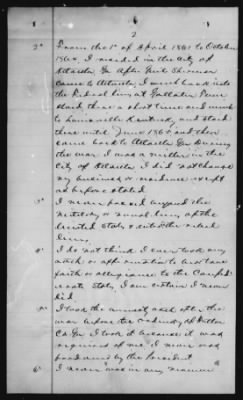 2
2d From the 1st of April 1861 to October
1864, I resided in the City of
Atlanta Ga After Genl Sherman
came to Atlanta I went back into
the Federal lines at Gallatin Tenn
staid there a short time and went
to Louisville Kentucky and staid
there until June 1865 and then
came back to Atlanta Ga During
the war I was a in the
city of Atlanta I did not change
my business or residence except
as before stated
3 I never passed beyond the
military or naval lines of the
United States & into the rebel
lines,
4 I do not think I ever took any
oath or affirmation to bear true
faith or allegiance to the Confed-
erate State, I am certain I never
did
I took the amnesty oath after the
war before the of Fulton
Co Ga I took it because it was
required of me I never was
pardoned by the President
6 I never was in any manner